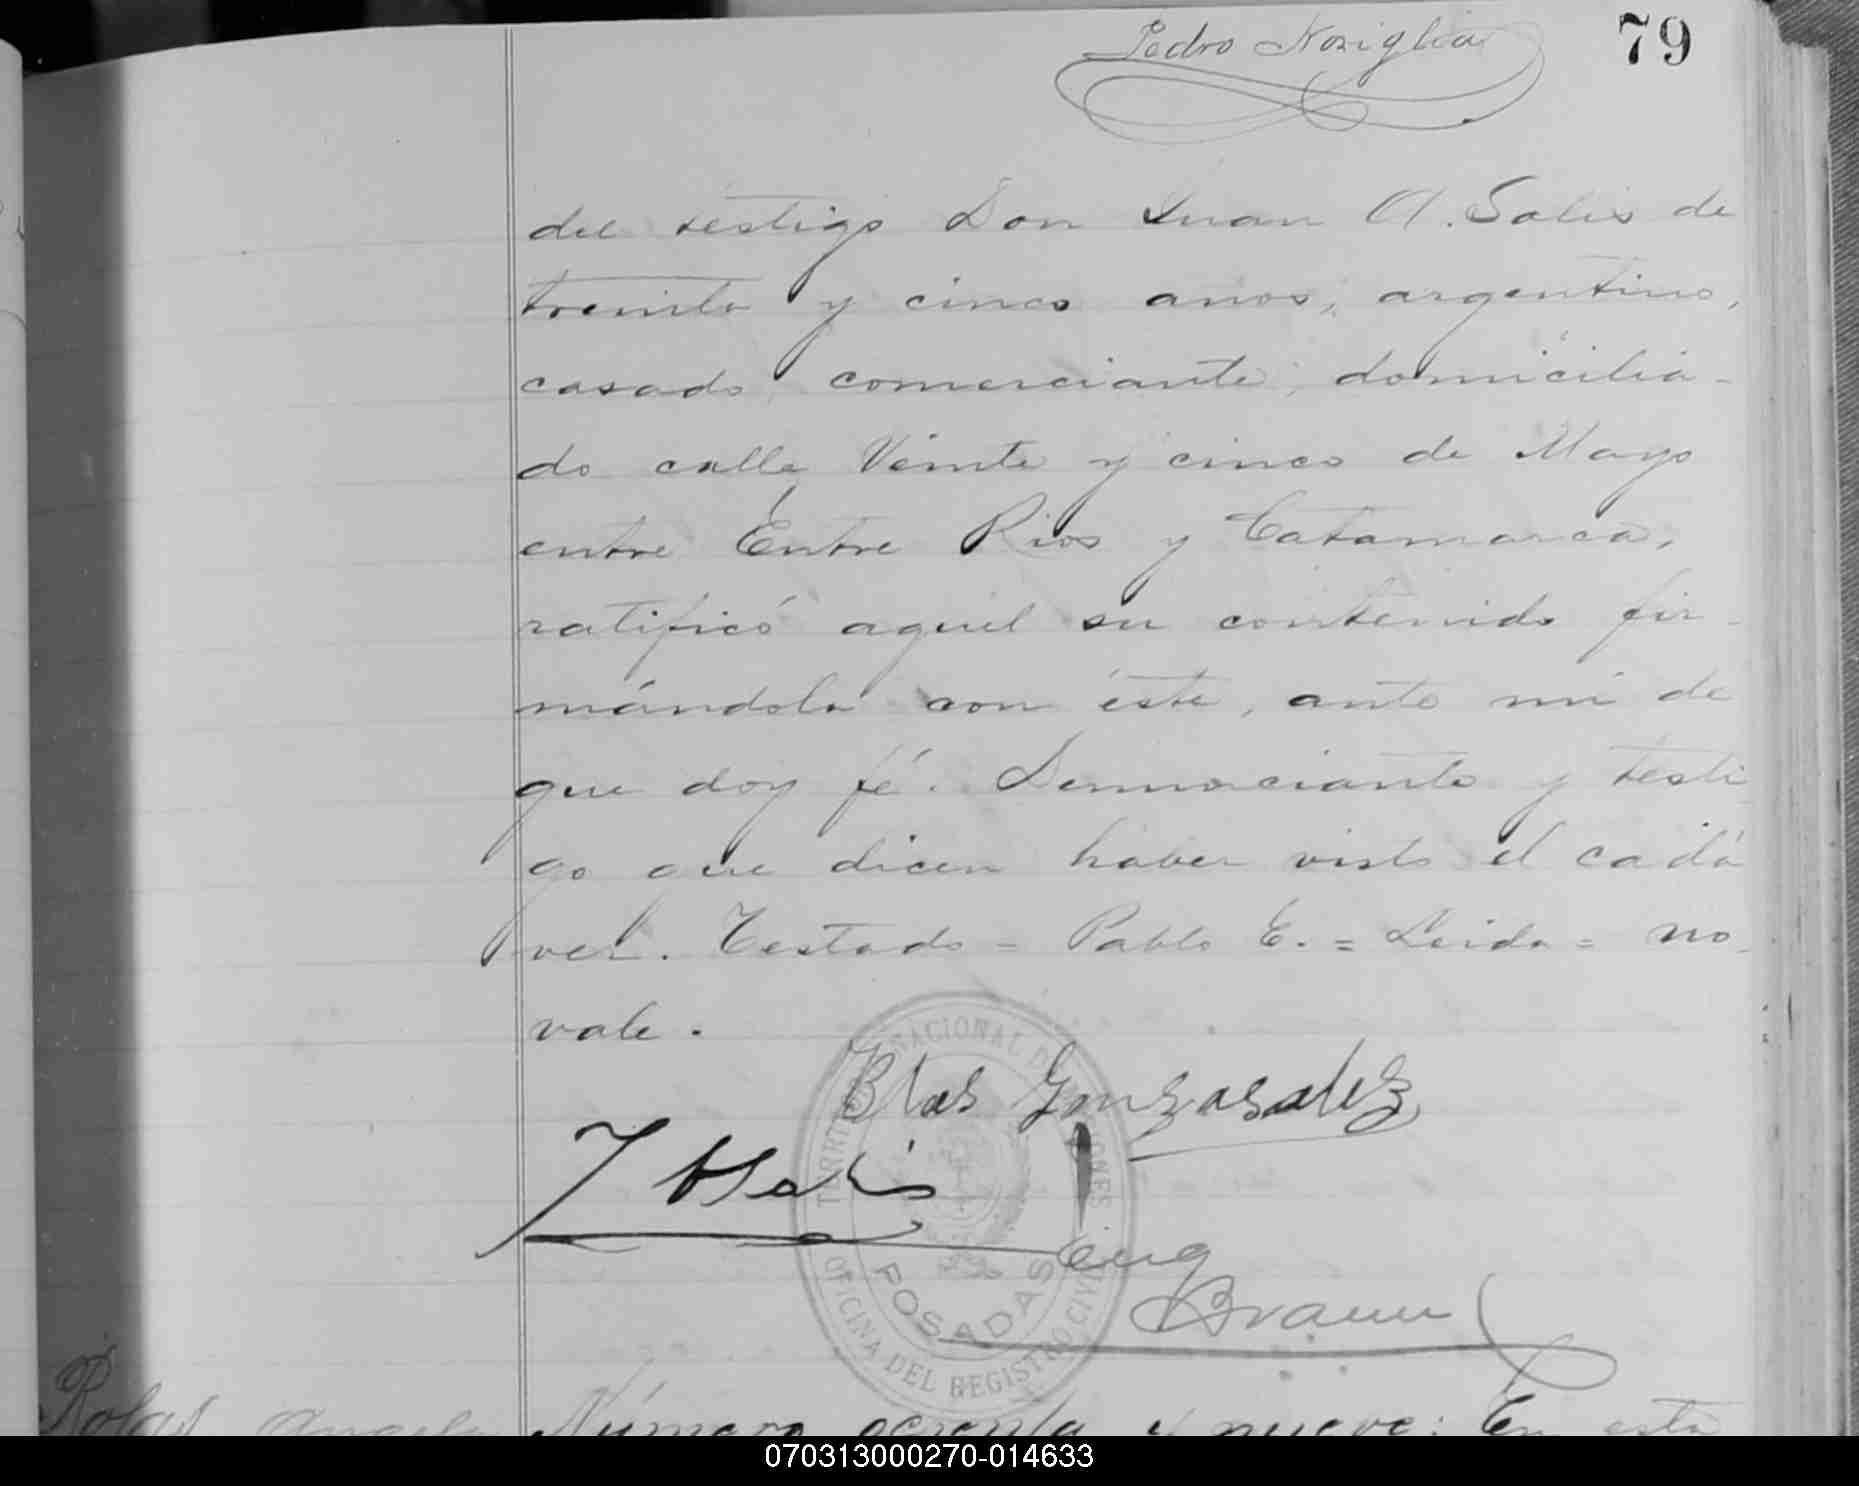 Pedro Noziglia
79
del testigo Don Juan A. Solis de
treinta y cinco anos, argentino,
casado, comerciante, domicilia-
do calle Veinte y cinco de Mayo
entre Entre Rios y Catamarca,
ratificó aquel su contenido fir-
mándola con éste, ante mi de
que doy fé. Denunciante y testi
go que dicen haber visto el cadá
ver. Testado = Pablo E. = Leida = no
vale.
Blas Gonzasalez
J A Solis
Eug
Braun
TERRITORIO NACIONAL DE MISIONES
POSADAS
OFICINA DEL REGISTRO CIVIL
Rojas Angela
Número ochenta y nueve: En esta
070313000270-014633